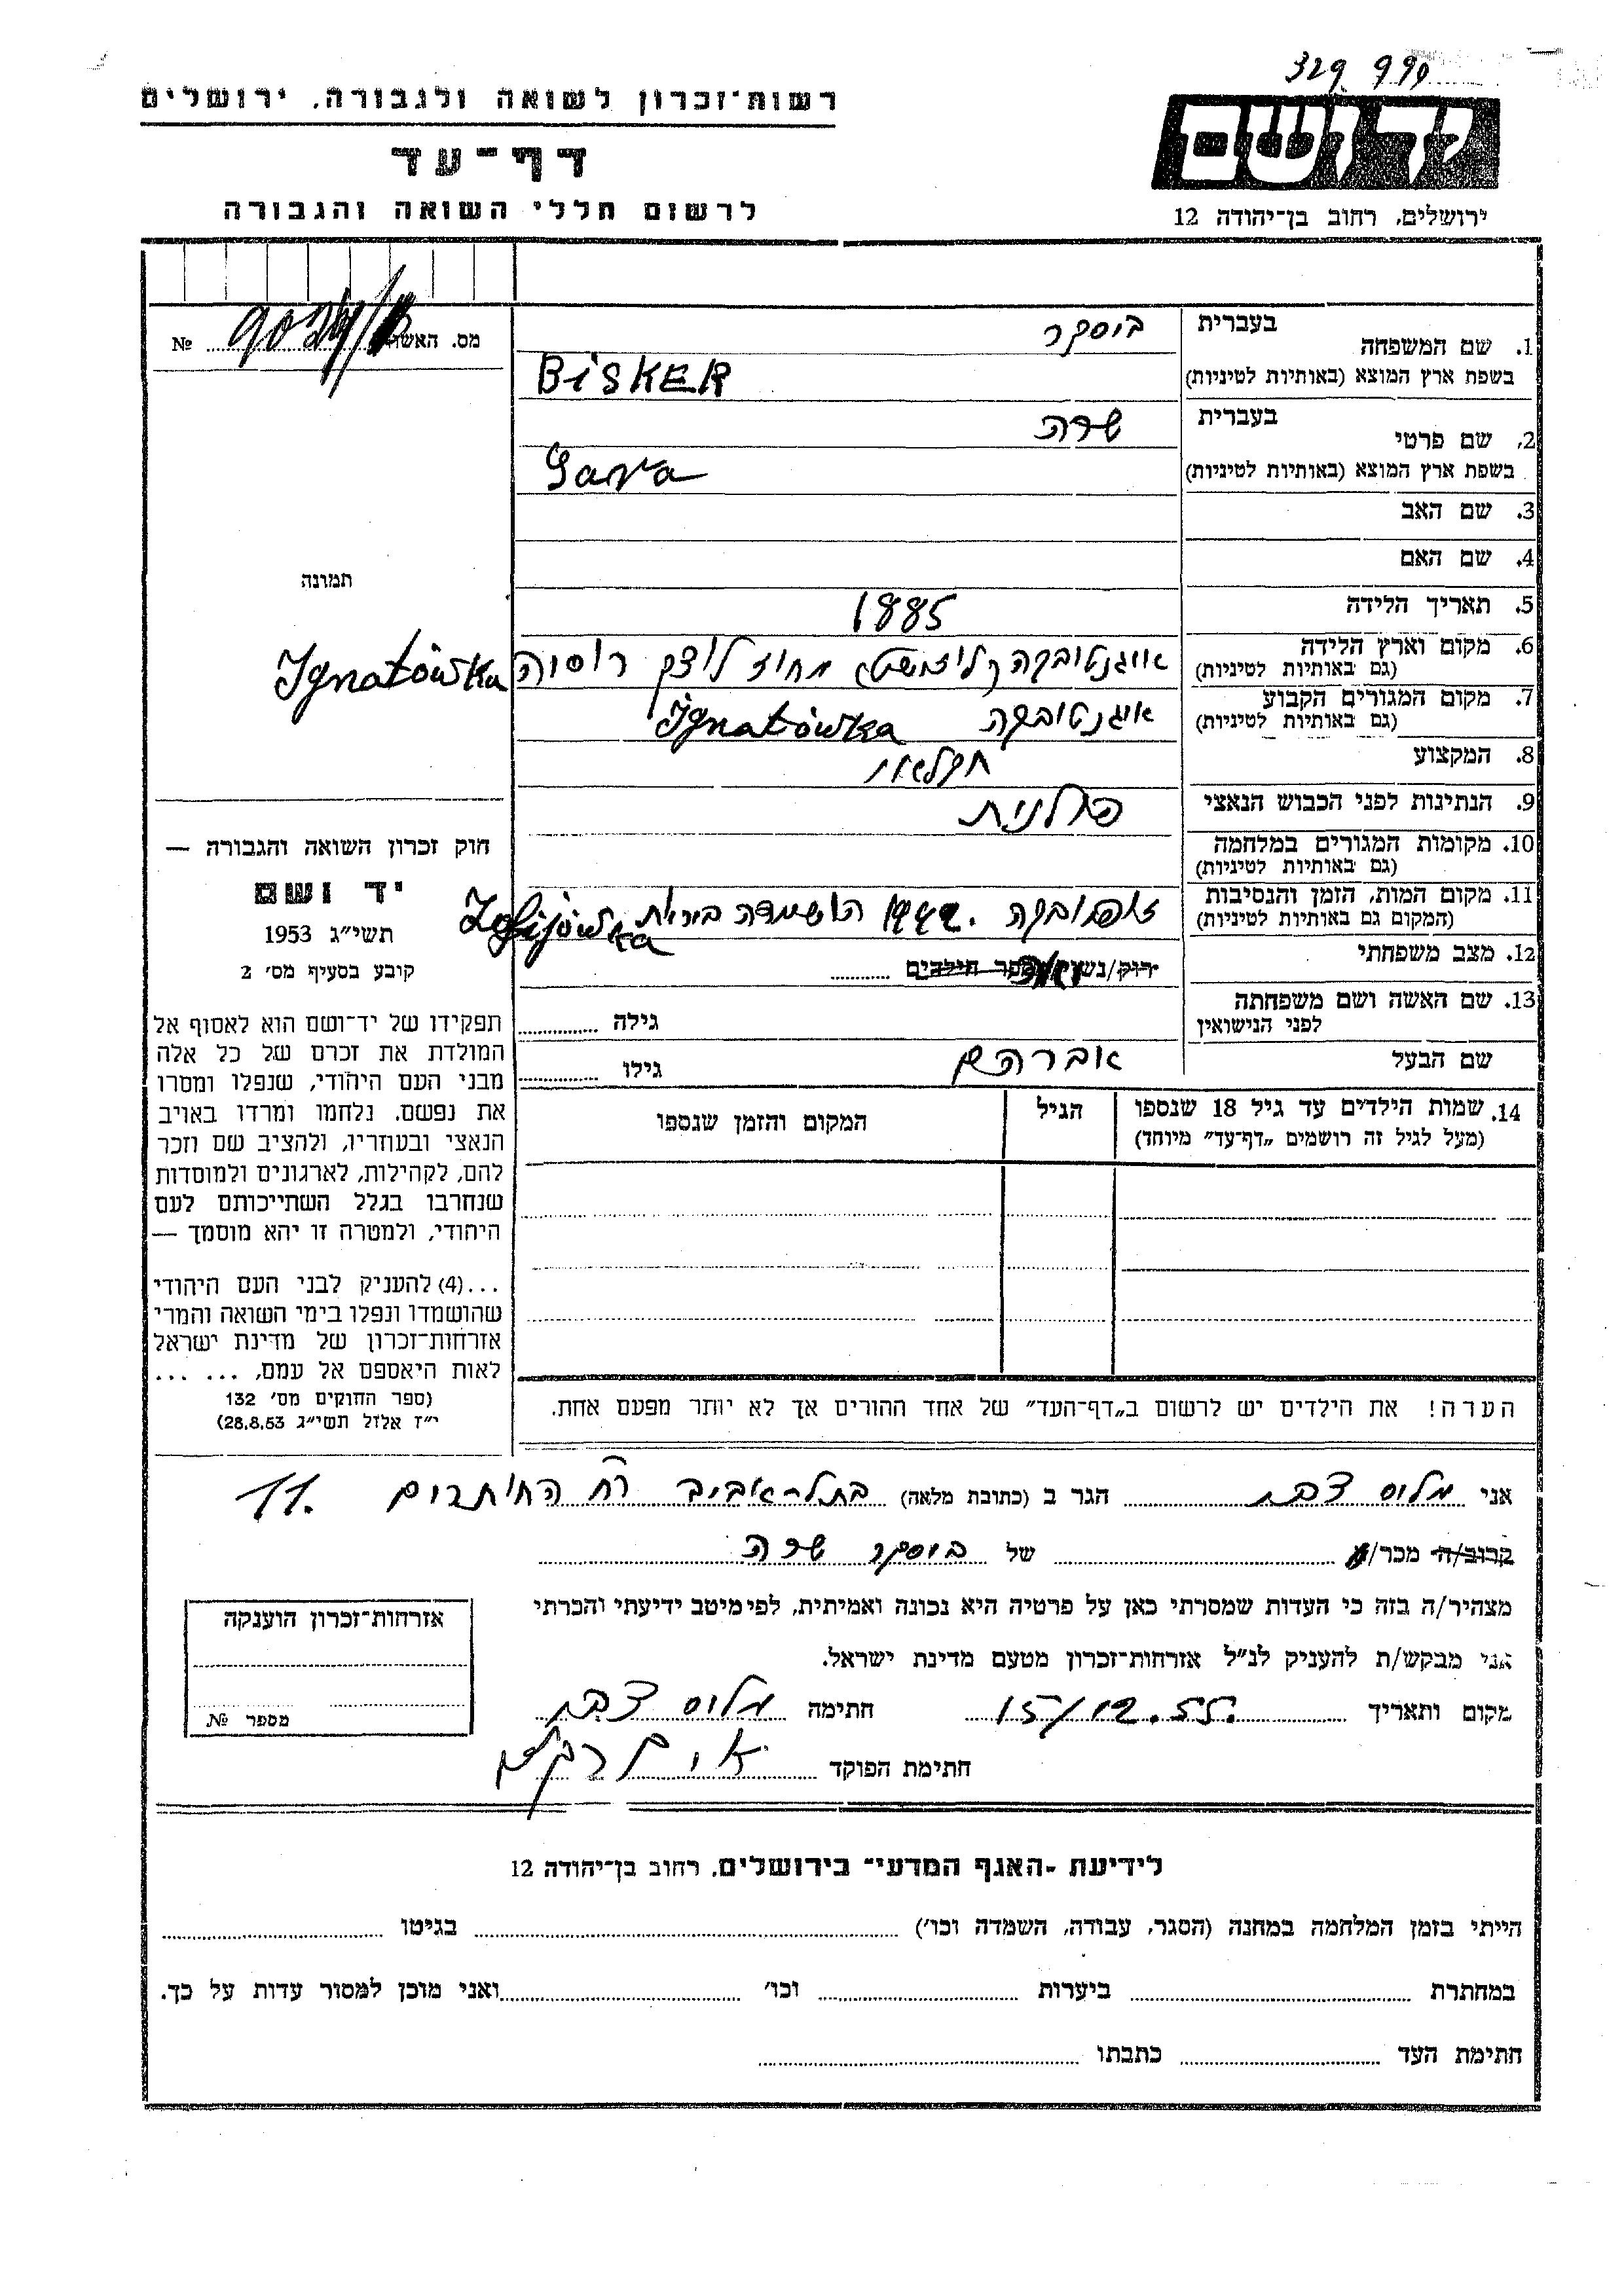 329 990
רשות־זכרון לשואה ולגבורה, ירושלים
דף־עד
לרשום חללי השואה והגבורה
יד ושם
ירושלים, רחוב בן־יהודה 12
מס. האשה №
בעברית
1. שם המשפחה
ביסקר
בשפת ארץ המוצא (באותיות לטיניות)
BiSKER
בעברית
2. שם פרטי
שרה
בשפת ארץ המוצא (באותיות לטיניות)
Sara
3. שם האב
4. שם האם
תמונה
5. תאריך הלידה
1885
6. מקום וארץ הלידה
(גם באותיות לטיניות)
איגנטובקה מחוז לוצק רוסיה Ignatówka
7. מקום המגורים הקבוע
(גם באותיות לטיניות)
איגנטובקה Ignatówka
8. המקצוע
חקלאי
9. הנתינות לפני הכבוש הנאצי
פולנית
10. מקומות המגורים במלחמה
(גם באותיות לטיניות)
11. מקום המות, הזמן והנסיבות
(המקום גם באותיות לטיניות)
זופיובקה 1942. הושמדה ביריות Zofijówka
12. מצב משפחתי
רוק/נשוי/מספר הילדים
13. שם האשה ושם משפחתה
לפני הנישואין
גילה
שם הבעל
אברהם
גילו
14. שמות הילדים עד גיל 18 שנספו
(מעל לגיל זה רושמים „דף־עד" מיוחד)
הגיל
המקום והזמן שנספו
הערה! את הילדים יש לרשום ב„דף־העד" של אחד ההורים אך לא יותר מפעם אחת.
חוק זכרון השואה והגבורה —
יד ושם
תשי״ג 1953
קובע בסעיף מס׳ 2
תפקידו של יד־ושם הוא לאסוף אל
המולדת את זכרם של כל אלה
מבני העם היהודי, שנפלו ומסרו
את נפשם. נלחמו ומרדו באויב
הנאצי ובעוזריו, ולהציב שם וזכר
להם, לקהילות, לארגונים ולמוסדות
שנחרבו בגלל השתייכותם לעם
היהודי, ולמטרה זו יהא מוסמך —
...(4) להעניק לבני העם היהודי
שהושמדו ונפלו בימי השואה והמרי
אזרחות־זכרון של מדינת ישראל
לאות היאספם אל עמם, ... ...
(ספר החוקים מס׳ 132
י״ז אלול תשי״ג 28.8.53)
אני מלוס הגר ב (כתובת מלאה) בתל־אביב רח החותרים 11.
קרוב/ה מכר/ של ביסקר שרה
מצהיר/ה בזה כי העדות שמסרתי כאן על פרטיה היא נכונה ואמיתית, לפי מיטב ידיעתי והכרתי
אני מבקש/ת להעניק לנ״ל אזרחות־זכרון מטעם מדינת ישראל.
מקום ותאריך 15/12.55. חתימה מלוס
חתימת הפוקד
אזרחות־זכרון הוענקה
מספר №
לידיעת -האגף המדעי־ בירושלים, רחוב בן־יהודה 12
הייתי בזמן המלחמה במחנה (הסגר, עבודה, השמדה וכו׳) בגיטו
במחתרת ביערות וכו׳ ואני מוכן למסור עדות על כך.
חתימת העד כתבתו